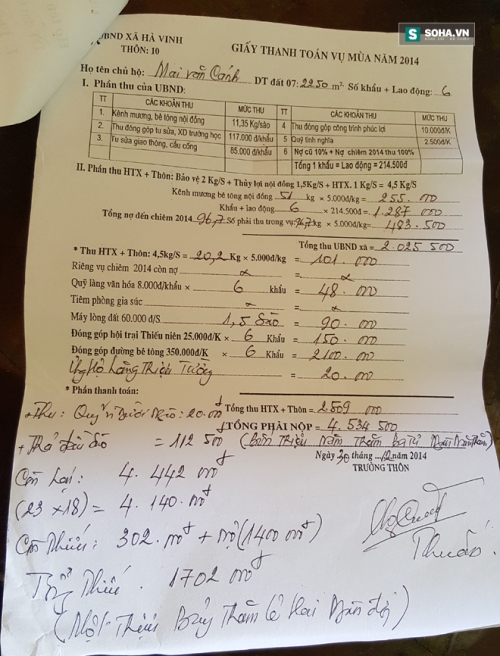 SOHA.VN
UBND XÃ HÀ VINH
THÔN: 10
GIẤY THANH TOÁN VỤ MÙA NĂM 2014
Họ tên chủ hộ: Mai Văn Cảnh DT đất 07: 2250 m² Số khẩu + Lao động: 6
I. Phần thu của UBND:
TT CÁC KHOẢN THU MỨC THU TT CÁC KHOẢN THU MỨC THU
1. Kênh mương, bê tông nội đồng 11,35 Kg/sào 4 Thu đóng góp công trình phúc lợi 10.000đ/K
2. Thu đóng góp tu sửa, XD trường học 117.000 đ/khẩu 5 Quỹ tình nghĩa 2.500đ/K
3. Tu sửa giao thông, cầu cống 85.000 đ/khẩu 6 Nợ cũ 10% + Nợ chiêm 2014 thu 100%
Tổng 1 khẩu = Lao động = 214.500đ
II. Phần thu HTX + Thôn: Bảo vệ 2 Kg/S + Thủy lợi nội đồng 1,5Kg/S + HTX. 1 Kg/S = 4,5 Kg/S
Kênh mương bê tông nội đồng 51 kg × 5.000đ/kg = 255.000
Khẩu + lao động 6 × 214.500đ = 1.287.000
Tổng nợ đến chiêm 2014 96,7 Số phải thu trong vụ 96,7 kg × 5.000đ/kg = 483.500
Tổng thu UBND xã = 2.025 500
* Thu HTX + Thôn: 4,5kg/S = 20,2 Kg × 5.000đ/kg = 101.000
Riêng vụ chiêm 2014 còn nợ =
Quỹ làng văn hóa 8.000đ/khẩu × 6 khẩu = 48.000
Tiêm phòng gia súc =
Máy lồng đất 60.000 đ/S 1,5 Sào = 90.000
Đóng góp hội trại Thiếu niên 25.000đ/K × 6 Khẩu = 150.000
Đóng góp đường bê tông 350.000đ/K × 6 Khẩu = 2100.000
Ủng hộ Làng = 20.000
* Phần thanh toán:
+ Thu: Quỹ 20.000đ Tổng thu HTX + Thôn = 2.509 000
TỔNG PHẢI NỘP = 4.534 500
= 112 500 (bốn triệu năm trăm ba tư
Ngày 30 tháng 12 năm 2014
TRƯỞNG THÔN
Còn lại: 4.442 000đ
(23 × 18) = 4.140.000đ
Còn thiếu: 302.000đ + nợ (1400 000đ)
Tổng thiếu. 1702 000đ
(Một Triệu Bảy Trăm lẻ Hai
Thuần